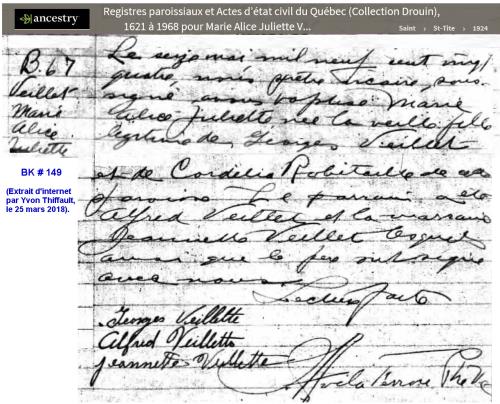 ancestry
Registres paroissiaux et Actes d'état civil du Québec (Collection Drouin),
1621 à 1968 pour Marie Alice Juliette V...
Saint › St-Tite › 1924
B 67
Veillet
Marie
Alice
Juliette
BK # 149
(Extrait d'internet
par Yvon Thiffault,
le 25 mars 2018).
Le seize mai mil neuf cent vingt
quatre nous prêtre vicaire, sous-
signé avons baptisé Marie
Alice Juliette née la veille fille
légitime de Georges Veillet
et de Cordelia Robitaille de cette
paroisse. Le parrain a été
Alfred Veillet et la marraine
Jeannette Veillet lesquels
ainsi que le père ont signé
avec nous.
Lecture faite
Georges Veillette
Alfred Veillette
Jeannette Veillette